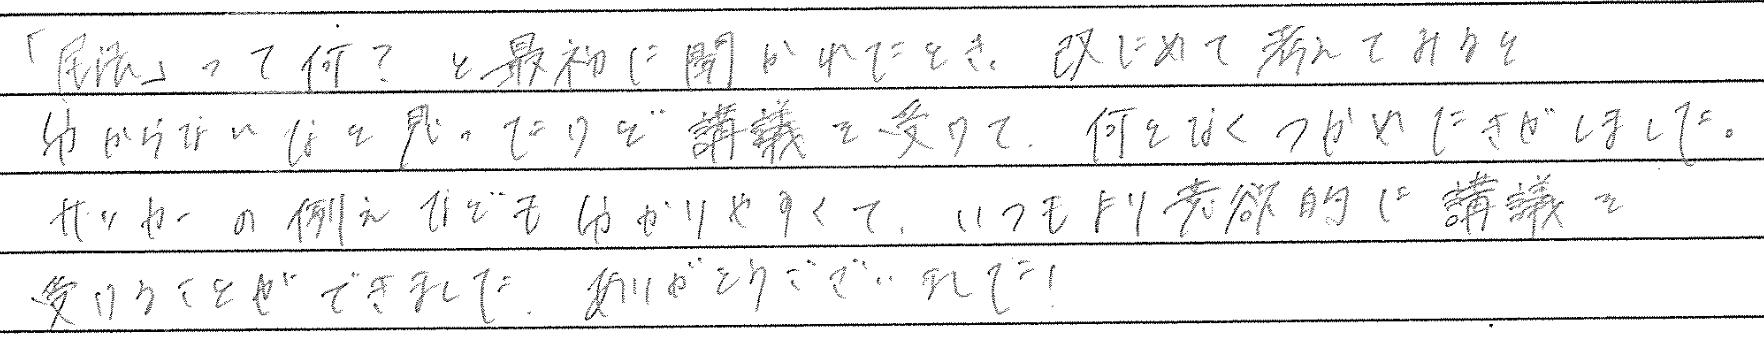 「民法」って何？と最初に聞かれたとき、改じめて考えてみると
分からないなと思ったけど講議を受けて、何となくつかめたきがしました。
サッカーの例えなども分かりやすくて、いつもより意欲的に講議を
受けることができました。ありがとうございました！